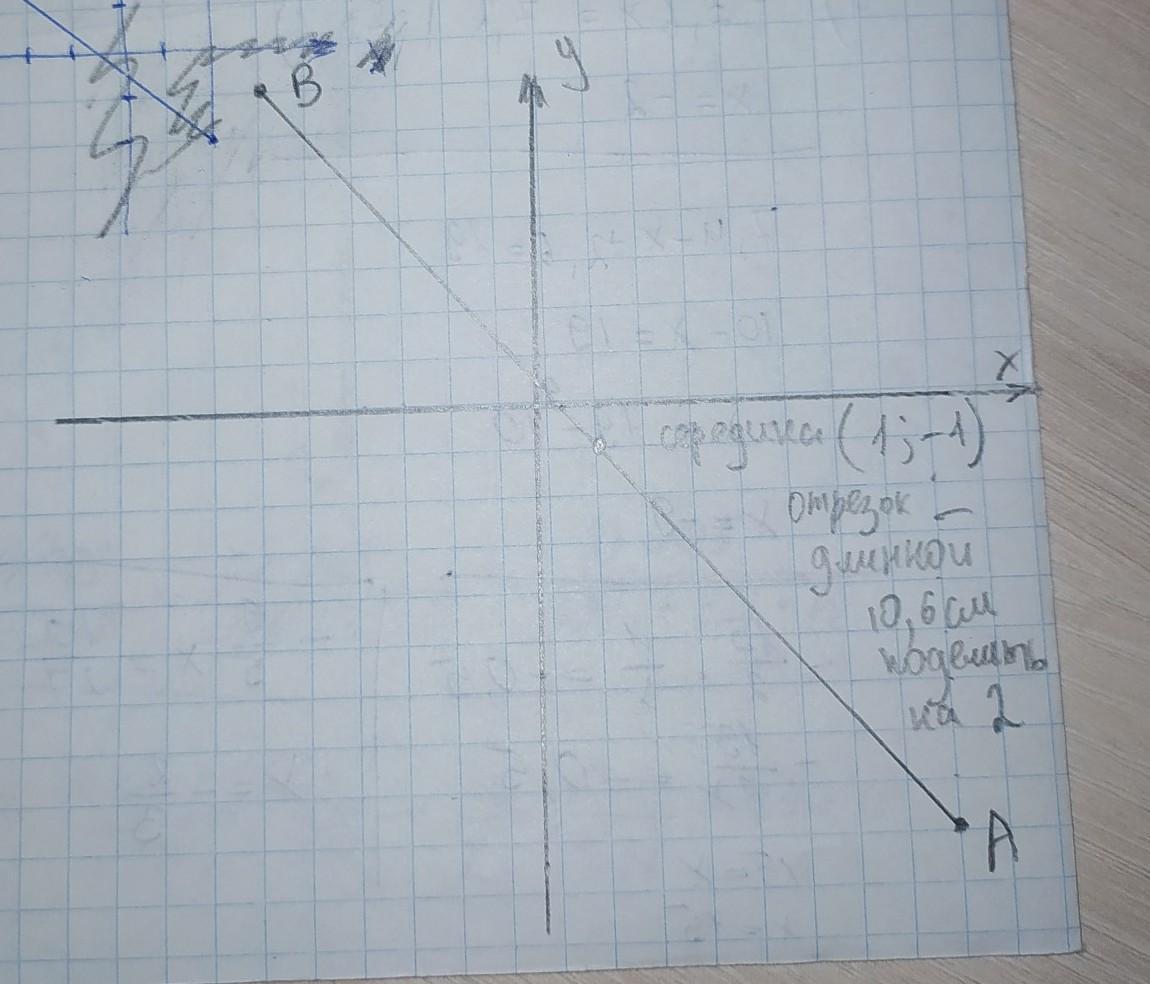 B
y
x
середина (1;-1)
отрезок -
длинной
10,6 см
поделить
на 2
A